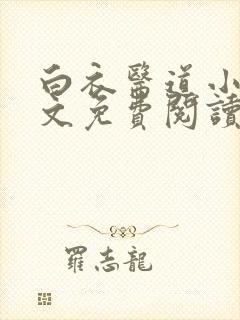 白衣醫道小
文免費閱讀
羅志龍